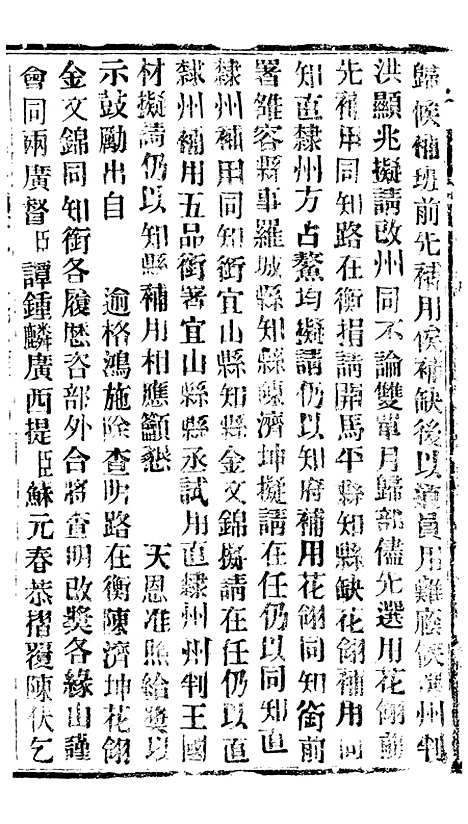 歸候補班前先補用俟補缺後以道員用鹽應候選州判
洪顯兆擬請改州同不論雙單月歸部儘先選用花翎前
先補用同知路在衡捐請開馬平縣知縣缺花翎補用同
知直隸州方占鰲均擬請仍以知府補用花翎同知銜前
署雒容縣事羅城縣知縣陳濟坤擬請在任仍以同知直
隸州補用同知銜宜山縣知縣金文錦擬請在任仍以直
隸州補用五品銜署宜山縣縣丞試用直隸州州判王國
材擬請仍以知縣補用相應籲懇 天恩准照給獎以
示鼓勵出自 逾格鴻施除查明路在衡陳濟坤花翎
金文錦同知銜各履歷咨部外合將查明改獎各緣由謹
會同兩廣督臣譚鍾麟廣西提臣蘇元春恭摺覆陳伏乞